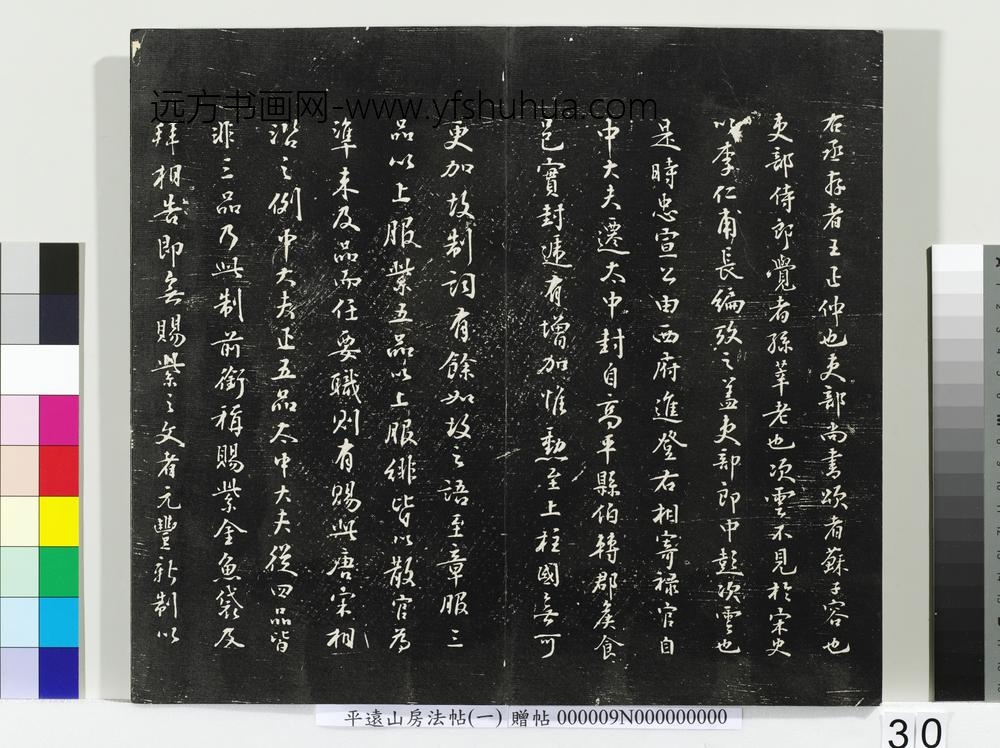 右丞存者王正仲也吏部尚書頌者蘇子容也
吏部侍郎覺者孫莘老也次雲不見於宋史
以李仁甫長編攷之蓋吏部郎中彭次雲也
是時忠宣公由西府進登右相寄祿官自
中大夫遷太中封自高平縣伯轉郡矦食
邑實封遞有增加惟勳至上柱國無可
更加故制詞有餘如故之語至章服三
品以上服紫五品以上服緋皆以散官為
準未及品而任要職則有賜此唐宋相
沿之例中大夫正五品太中大夫從四品皆
非三品乃此制前銜稱賜紫金魚袋及
拜相告即無賜紫之文者元豐新制以
远方书画网-www.yfshuhua.com
平遠山房法帖(一) 贈帖 000009N000000000
30